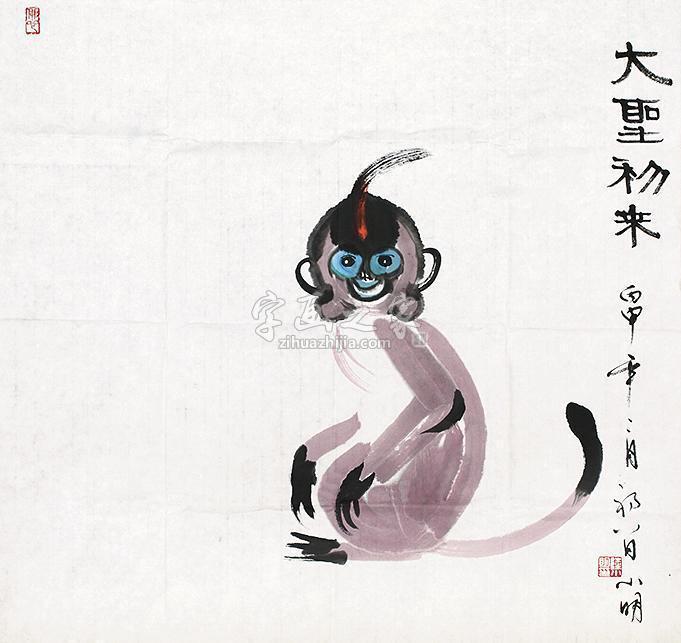 大聖初来
丙申年二月初八日小明
字画之家
zihuazhijia.com